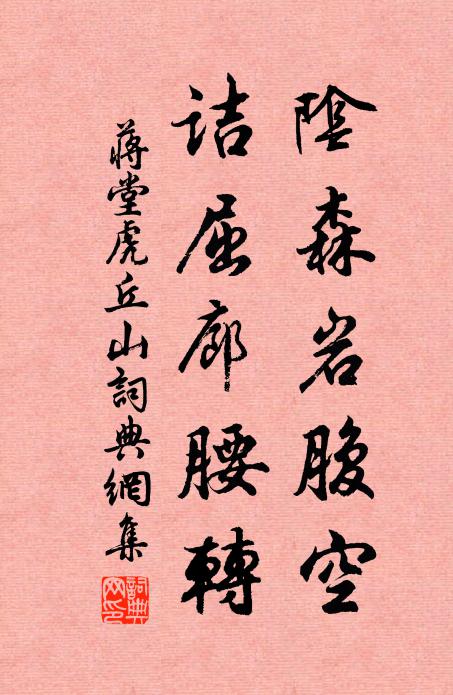 陰森岩腹空
詰屈廊腰轉
蔣堂虎丘山詞典網集
詞典网印